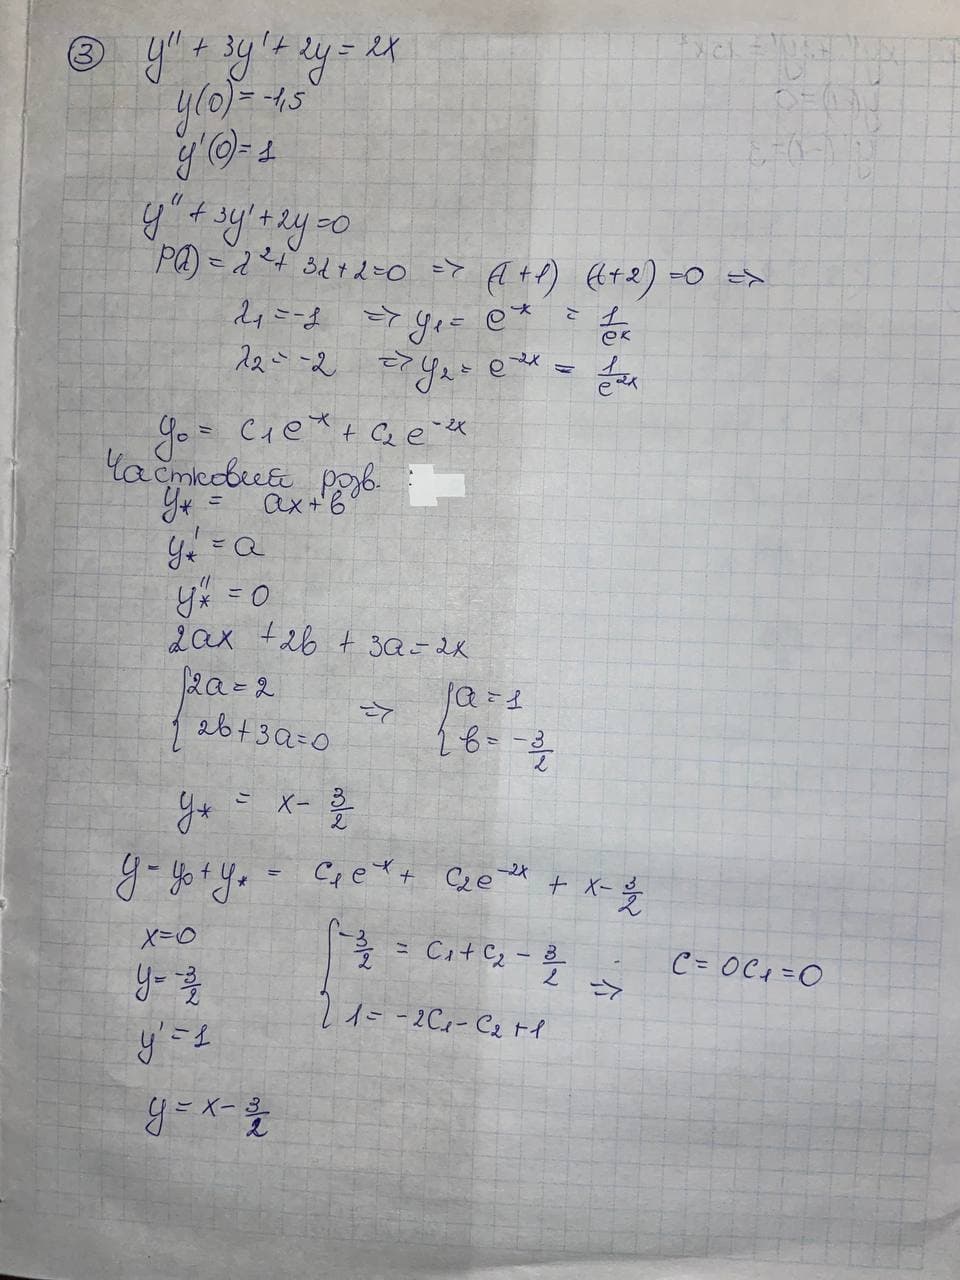 ③ y'' + 3y' + 2y = 2x
y(0) = -1,5
y'(0) = 1
y'' + 3y' + 2y = 0
P(λ) = λ² + 3λ + 2 = 0 => (λ + 1) (λ + 2) = 0 =>
λ₁ = -1 => y₁ = e⁻ˣ = 1/eˣ
λ₂ = -2 => y₂ = e⁻²ˣ = 1/e²ˣ
y₀ = C₁e⁻ˣ + C₂e⁻²ˣ
Частковий розв.
y* = ax + b
y*' = a
y*'' = 0
2ax + 2b + 3a = 2x
{ 2a = 2 => { a = 1
2b + 3a = 0 b = -3/2
y* = x - 3/2
y = y₀ + y* = C₁e⁻ˣ + C₂e⁻²ˣ + x - 3/2
x = 0 { -3/2 = C₁ + C₂ - 3/2 => C = 0 C₁ = 0
y = -3/2
1 = -2C₁ - C₂ + 1
y' = 1
y = x - 3/2